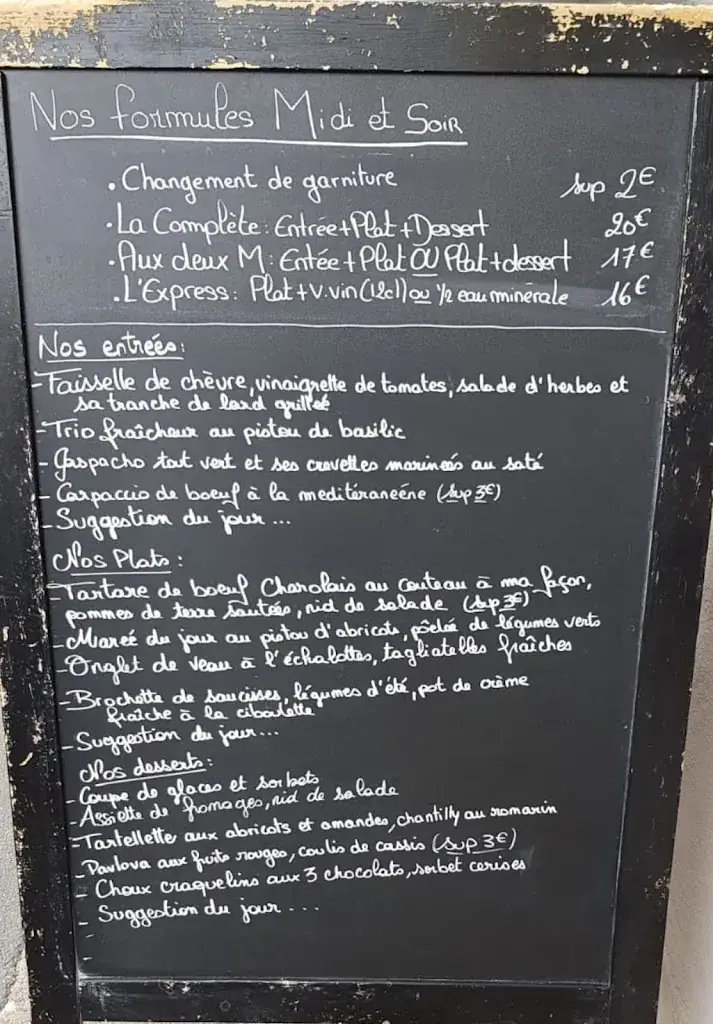 Nos formules Midi et Soir
. Changement de garniture sup 2€
. La Complète : Entrée + Plat + Dessert 20€
. Aux deux M : Entée + Plat OU Plat + dessert 17€
. L'Express : Plat + V.vin (12cl) ou 1/2 eau minérale 16€
Nos entrées :
- Faisselle de chèvre, vinaigrette de tomates, salade d'herbes et
sa tranche de lard grilleé
- Trio fraîcheur au pistou de basilic
- Gaspacho tout vert et ses crevettes marineés au saté
- Carpaccio de boeuf à la meditéraneéne (sup 3€)
- Suggestion du jour ...
Nos Plats :
- Tartare de boeuf Charolais au couteau à ma façon,
pommes de terre sautées, nid de salade (sup 3€)
- Mareé du jour au pistou d'abricots, pôeleé de légumes verts
- Onglet de veau à l'échalottes, tagliatelles fraîches
- Brochette de saucisses, légumes d'été, pot de crème
fraîche à la ciboulette
- Suggestion du jour ...
Nos desserts :
- Coupe de glaces et sorbets
- Assiette de fromages, nid de salade
- Tartellette aux abricots et amandes, chantilly au romarin
- Pavlova aux fruits rouges, coulis de cassis (sup 3€)
- Choux craquelins aux 3 chocolats, sorbet cerises
- Suggestion du jour ...
-
-